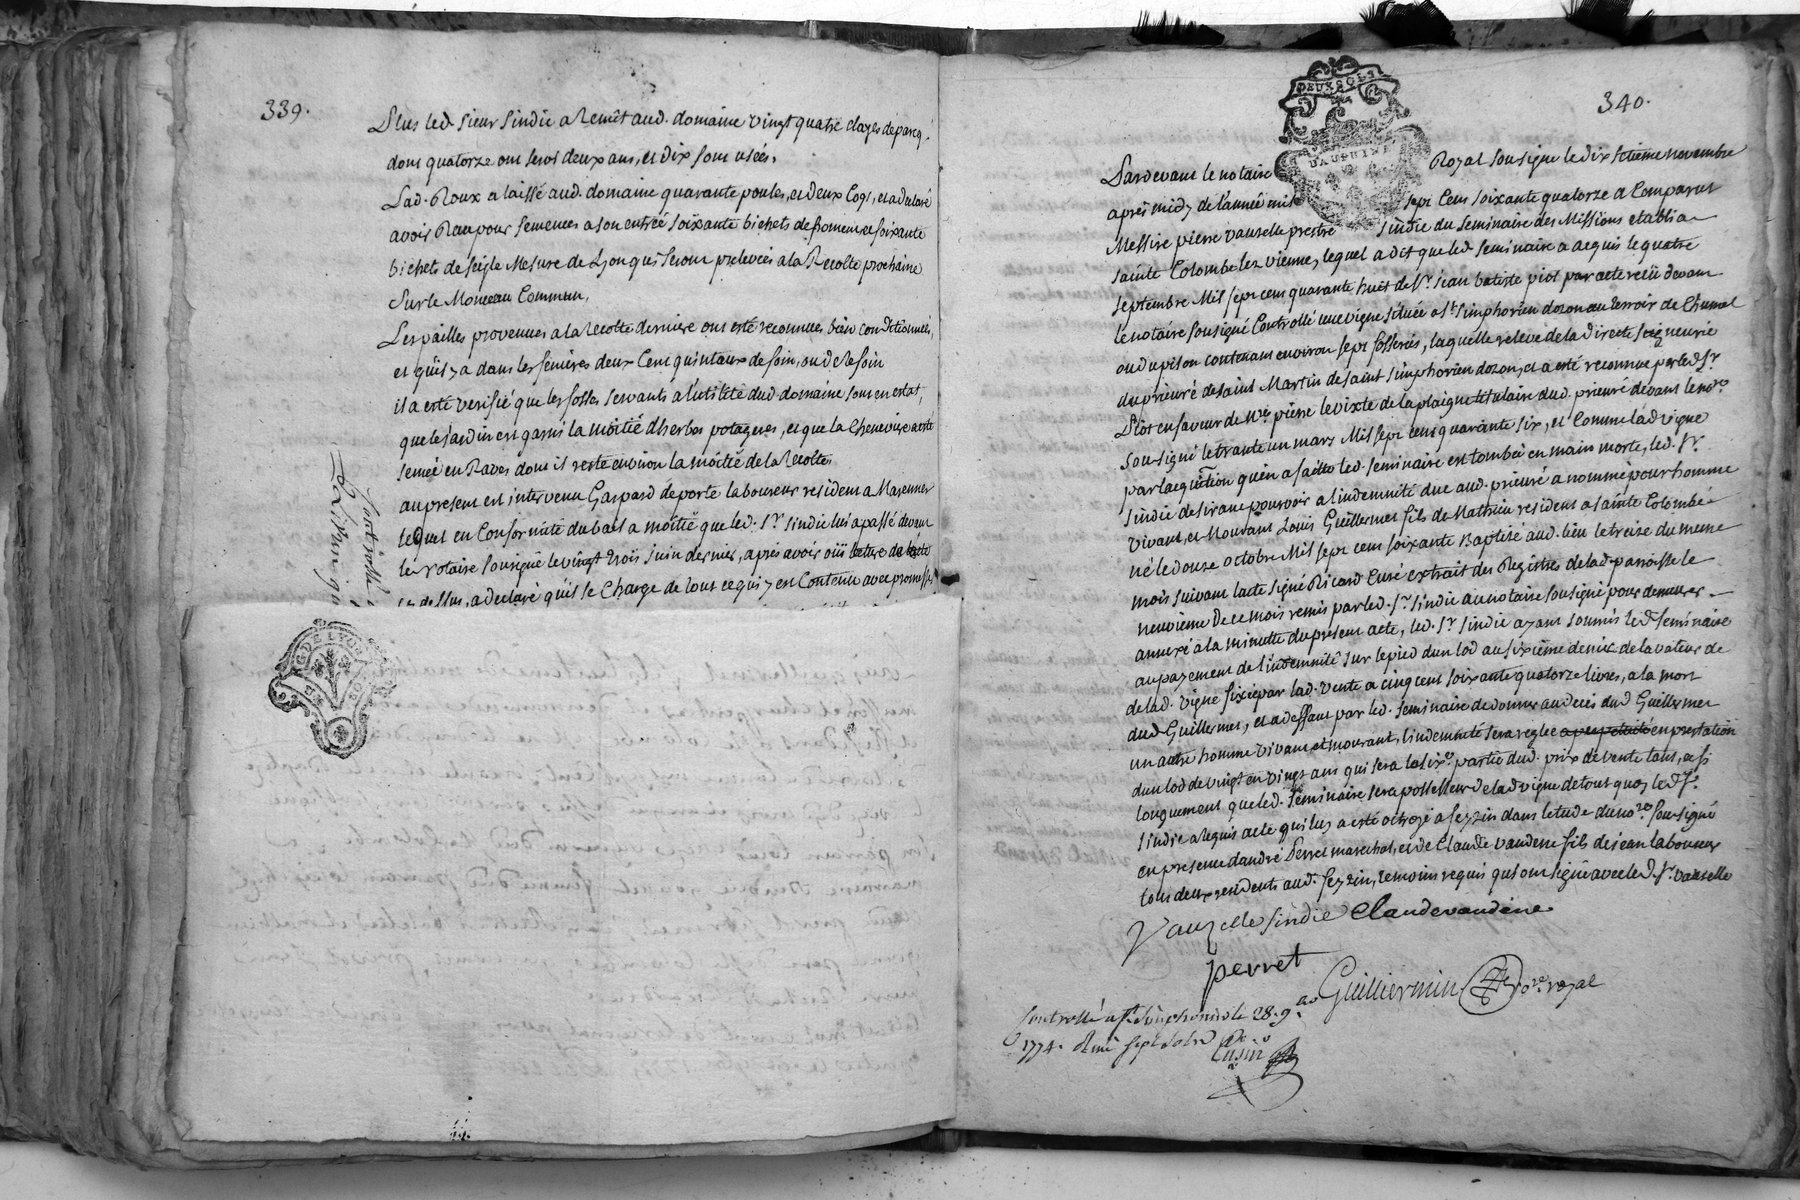 339.
Plus led. sieur sindic a remêt aud. domaine vingt quatre clayes de parcq.
dont quatorze ont servi deux ans, et dix sont usées.
Lad. Roux a laissé aud. domaine quarante poules, et deux Coqs, et a declaré
avoir Reçu pour semences a son entrée soixante bichets de froment et soixante
bichets de seigle Mesure de Lyon qui seront prelevées a la Recolte prochaine
sur le Monceau Commun,
Les pailles provenues a la recolte derniere ont esté reconnues bien conditionnées,
et qu'il y a dans les fenieres deux Cent quintaux de foin, ou de
il a esté verifié que les fosses servants a l'utilité dud domaine sont en estat,
que le jardin est garni la moitié d'herbes potageres, et que la Cheneviere a esté
semée en Raves dont il reste environ la moitié de la recolte
au present est intervenu Gaspard deporte laboureur resident a Marennes
lequel en Conformité du bail a moitié que led. Sr. sindic lui a passé devant
le Notaire soussigné le vingt trois juin dernier, apres avoir oüi lecture de
cy dessus, a declaré qu'il se Charge de tout ce qui y est Contenu avec promesse
Controllé
G DE LYON
340.
DEUX SOLS
DAUPHINE
Pardevant le notaire Royal soussigné le dix septieme novembre
apres midy de l'année mil sept Cent soixante quatorze a Comparut
Messire pierre Vauzelle prestre sindic du seminaire des Missions etabli a
sainte Colombe lez vienne, lequel a dit que led seminaire a acquis le quatre
septembre Mil sept cent quarante huit de Sr. jean batiste piot par acte reçu devant
le notaire soussigné Controllé une vigne située a St. simphorien dozon au terroir de Chunal
ou du pison contenant environ sept fosserées, laquelle releve de la directe seigneurie
du prieuré de saint Martin de saint simphorien dozon, et a esté reconnue par led Sr.
Piot en faveur de Mre pierre levixte de la plaigne titulaire dud. prieuré devant le nore
soussigné le trante un mars Mil sept cent quarante six, et Comme lad vigne
par lacquisition qu'en a faitte led. seminaire est tombée en main morte, led. Sr.
sindic desirant pourvoir a l'indemnité due aud. prieuré a nommé pour homme
vivant, et Mourant Louis Guillermet fils de Mathieu resident a sainte Colombe
né le douze octobre Mil sept cent soixante Baptizé aud. lieu le treize du meme
mois suivant lacte signé Ricard Curé extrait des Registres de lad. parroisse le
neuvieme de ce mois remis par led. Sr. sindic au notaire soussigné pour demeurer
annexé a la minutte du present acte, led. Sr. sindic ayant soumis led. seminaire
au payement de l'indemnité sur le pied d'un lod au sixieme denier de la valeur de
de lad. vigne fixée par lad. vente a cinq cent soixante quatorze livres, a la mort
dud Guillermet, et a deffaut par led. seminaire de donner au deces dud Guillermet
un autre homme vivant et mourant, l'indemnité sera reglée a perpetuité en prestation
d'un lod de vingt en vingt ans qui sera la sixe. partie dud. prix de vente tant, et si
longuement que led. seminaire sera possesseur de lad vigne de tout quoy led Sr.
sindic a requis acte qui luy a esté octroyé a feyzin dans letude du nore soussigné
en presence d'andré Perret marechal, et de Claude vandene fils de jean laboureur
tous deux residents aud. feyzin, temoins requis qui ont signé avec led. Sr. vauzelle
Vauzelle sindic Claude vandene
perret
Guilliermin nore. royal
Controllé a St. simphorien le 28. 9bre
1774. Reçu sept sols